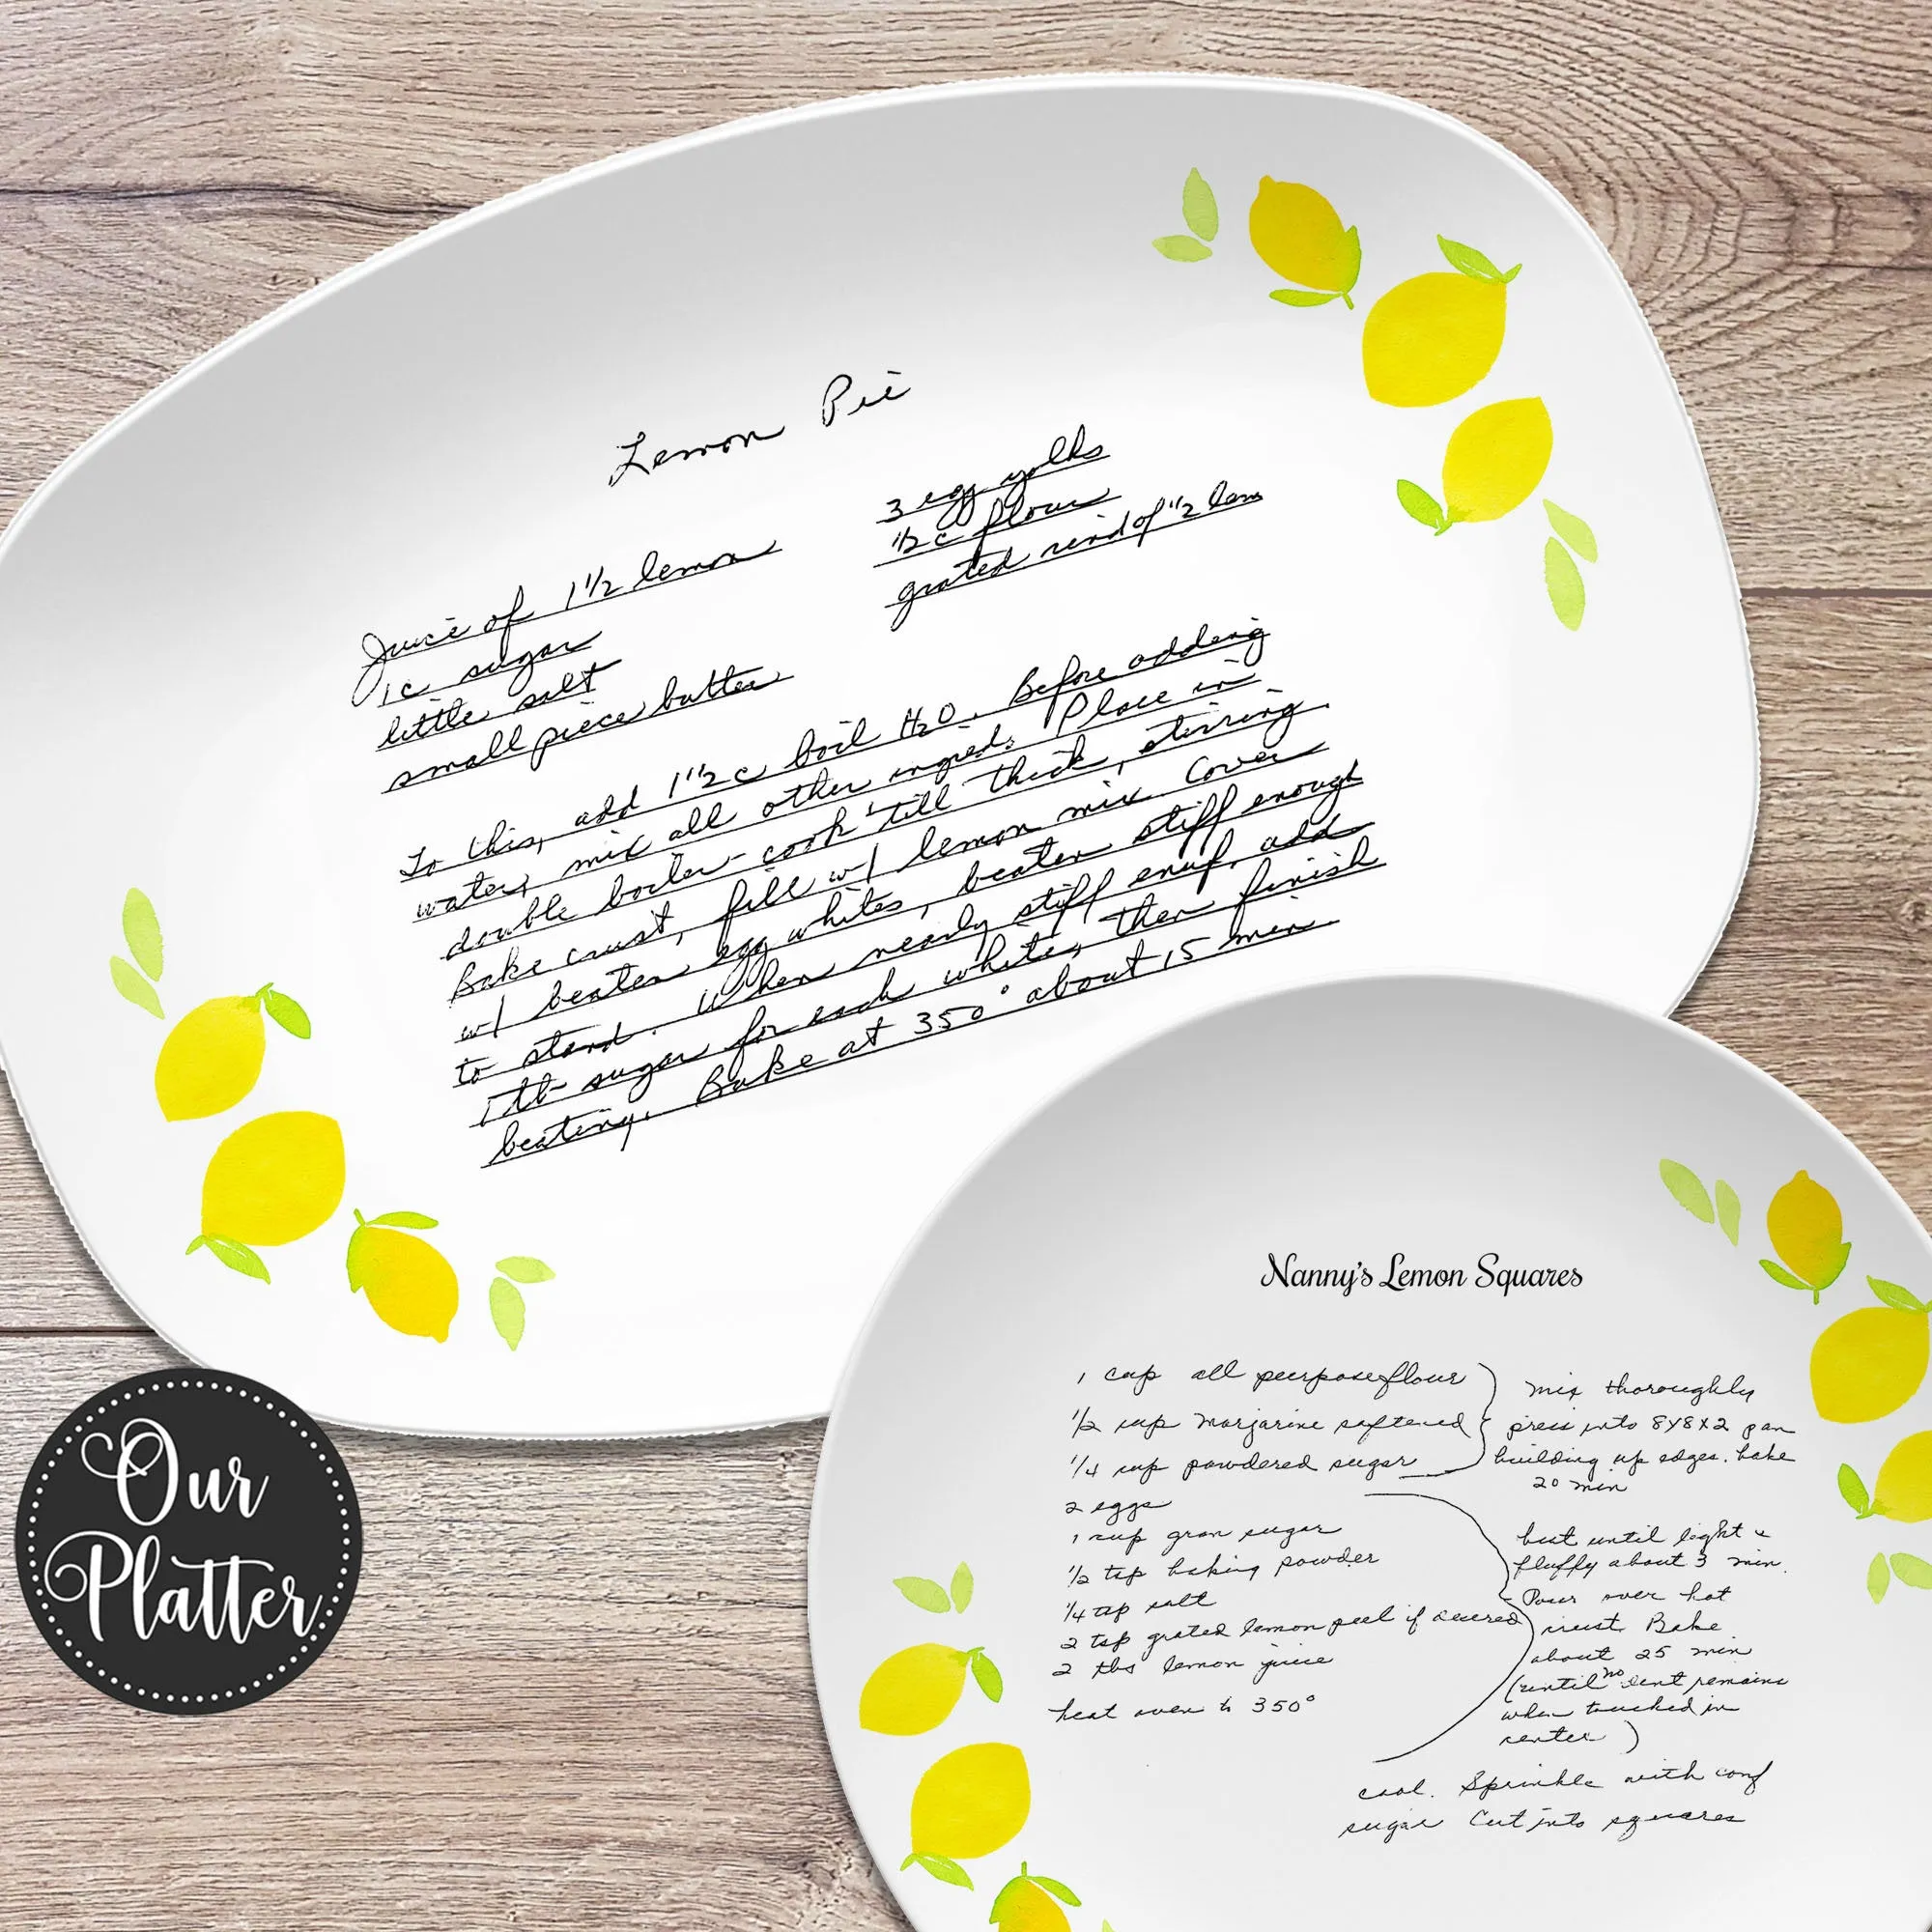 Lemon Pie
Juice of 1 1/2 lemon
1c sugar
little salt
small piece butter
3 egg yolks
1/2 c flour
grated rind of 1/2 lem
To this, add 1 1/2 c boil H2O. Before adding
water, mix all other ingred. Place in
double boiler - cook 'till thick, stirring.
Bake crust, fill w/ lemon mix. Cover
w/ beaten egg whites, beaten stiff enough
to stand. When nearly stiff enuf, add
1 tb- sugar for each white, then finish
beating. Bake at 350° about 15 min.
Nanny's Lemon Squares
1 cup all purpose flour
1/2 cup margarine softened
1/4 cup powdered sugar
mix thoroughly
press into 8x8x2 pan
building up edges. bake
20 min
2 eggs
1 cup gran sugar
1/2 tsp baking powder
1/4 tsp salt
2 tsp grated lemon peel if desired
2 tbs lemon juice
heat oven to 350°
beat until light &
fluffy about 3 min.
Pour over hot
crust. Bake
about 25 min
(until no dent remains
when touched in
center)
cool. Sprinkle with conf
sugar Cut into squares
Our
Platter